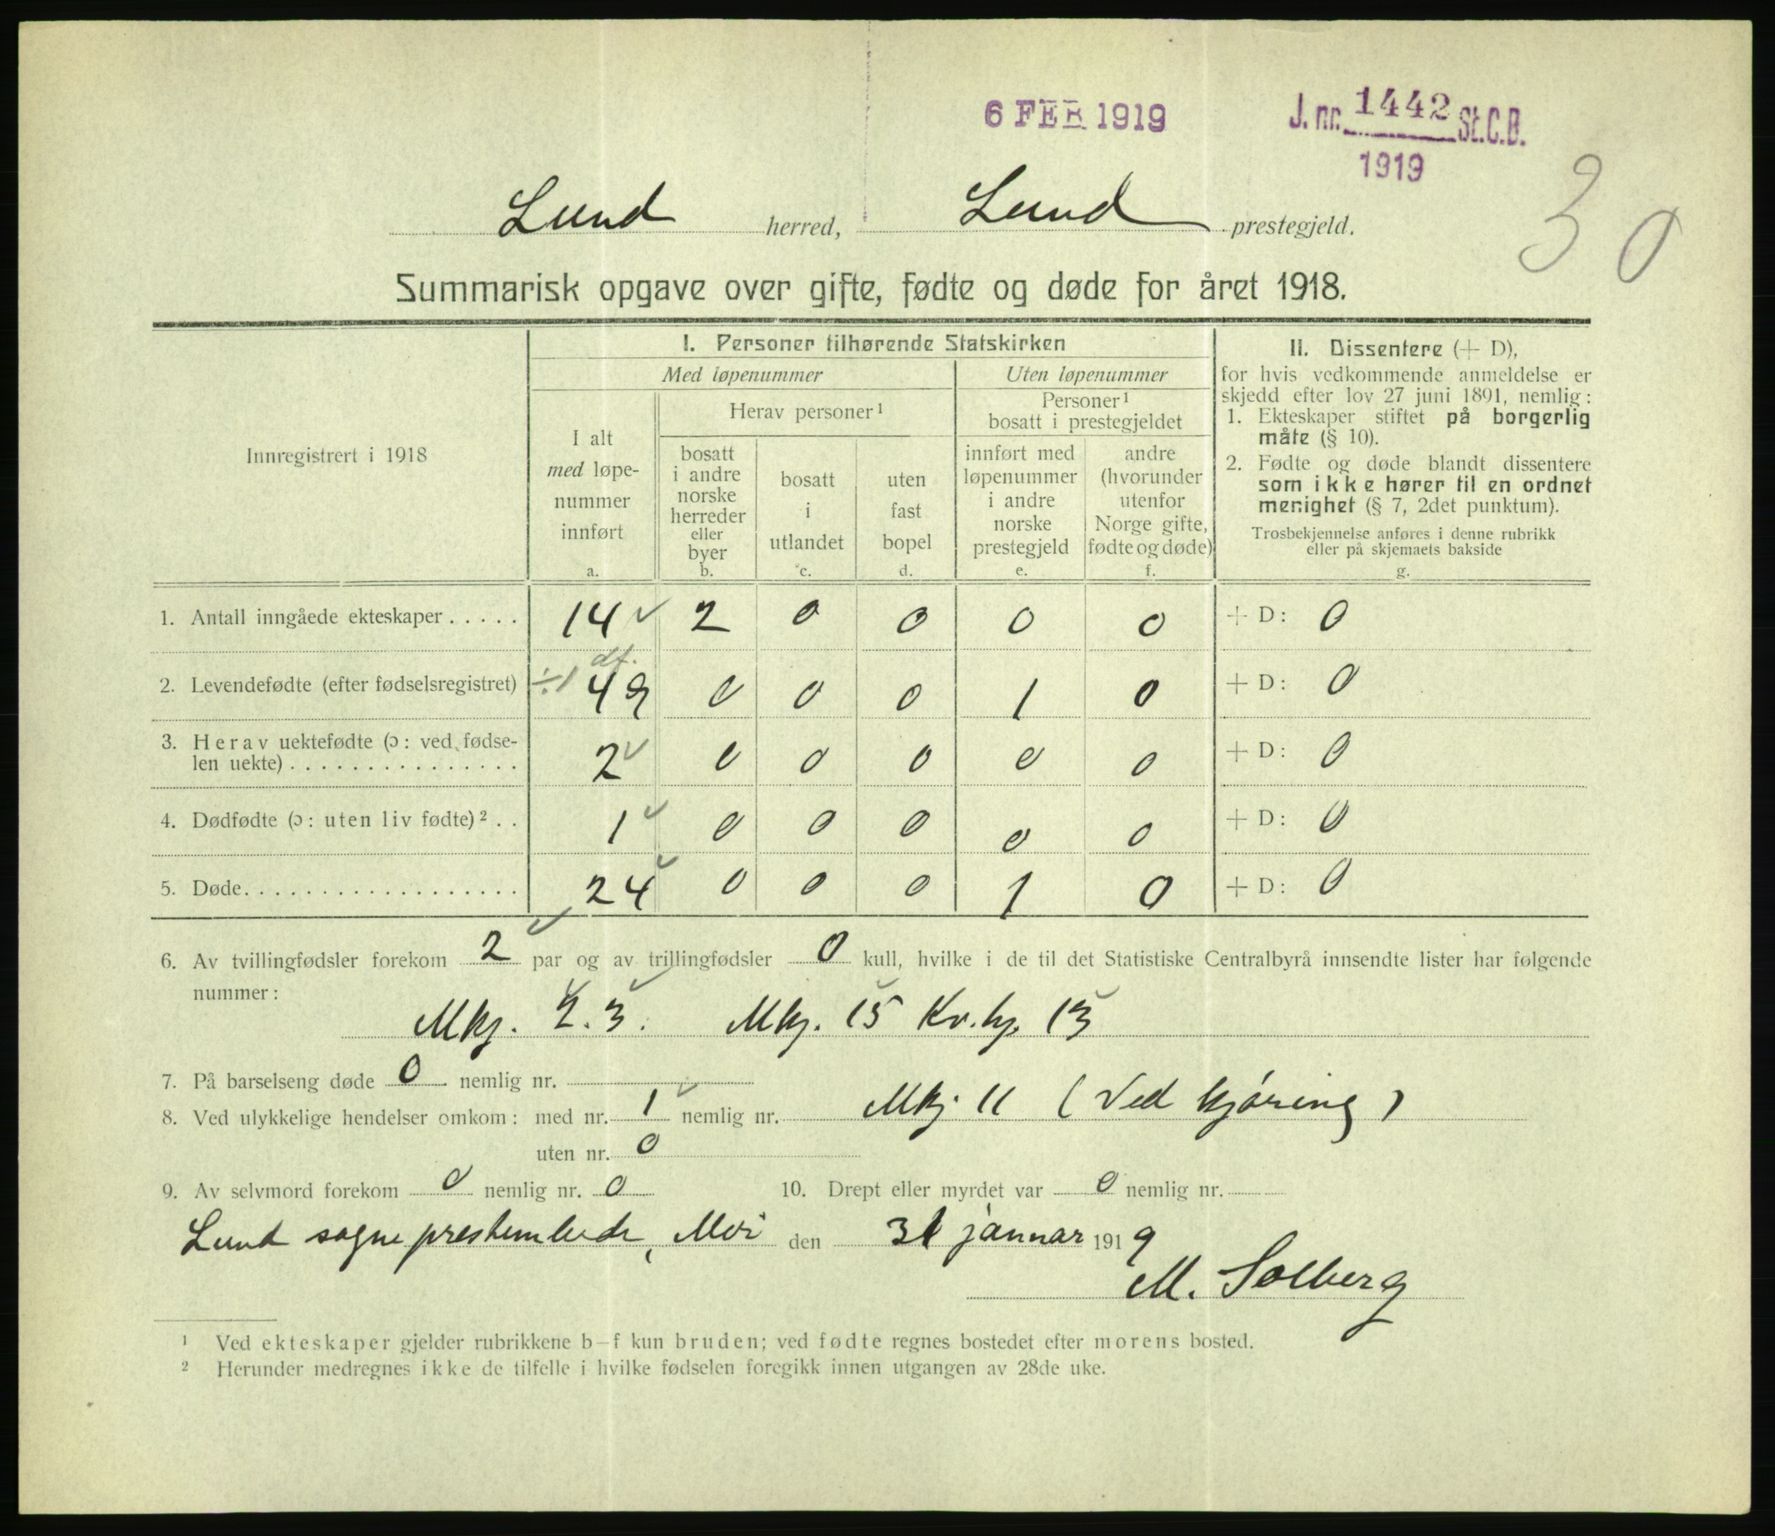 6 FEB 1919
J. nr. 1442 St.C.B.
1919
30
Lund herred, Lund prestegjeld.
Summarisk opgave over gifte, fødte og døde for året 1918.
Innregistrert i 1918
I. Personer tilhørende Statskirken
Med løpenummer
Uten løpenummer
I alt
med løpe-
nummer
innført
a.
Herav personer¹
bosatt
i andre
norske
herreder
eller
byer
b.
bosatt
i
utlandet
c.
uten
fast
bopel
d.
Personer¹
bosatt i prestegjeldet
innført med
løpenummer
i andre
norske
prestegjeld
e.
andre
(hvorunder
utenfor
Norge gifte,
fødte og døde)
f.
II. Dissentere (+ D),
for hvis vedkommende anmeldelse er
skjedd efter lov 27 juni 1891, nemlig:
1. Ekteskaper stiftet på borgerlig
måte (§ 10).
2. Fødte og døde blandt dissentere
som ikke hører til en ordnet
menighet (§ 7, 2det punktum).
Trosbekjennelse anføres i denne rubrikk
eller på skjemaets bakside
g.
1. Antall inngåede ekteskaper . . . . . 14 ✓ 2 0 0 0 0 + D: 0
df.
2. Levendefødte (efter fødselsregistret) ÷1 49 0 0 0 1 0 + D: 0
3. Herav uektefødte (ɔ: ved fødse-
len uekte) . . . . . . . . . . . . . . . 2 ✓ 0 0 0 0 0 + D: 0
4. Dødfødte (ɔ: uten liv fødte)² . . 1 ✓ 0 0 0 0 0 + D: 0
5. Døde. . . . . . . . . . . . . . . . . . 24 ✓ 0 0 0 1 0 + D: 0
6. Av tvillingfødsler forekom 2 ✓ par og av trillingfødsler 0 kull, hvilke i de til det Statistiske Centralbyrå innsendte lister har følgende
nummer:
Mkj. 2. 3. Mkj. 15 Kv.kj. 13
7. På barselseng døde 0 nemlig nr.
8. Ved ulykkelige hendelser omkom: med nr. 1 ✓ nemlig nr. Mkj. 11 (Ved kjøring)
uten nr. 0
9. Av selvmord forekom 0 nemlig nr. 0 10. Drept eller myrdet var 0 nemlig nr.
Lund sogneprestembede, Moi den 31 januar 1919
M. Solberg
¹ Ved ekteskaper gjelder rubrikkene b–f kun bruden; ved fødte regnes bostedet efter morens bosted.
² Herunder medregnes ikke de tilfelle i hvilke fødselen foregikk innen utgangen av 28de uke.